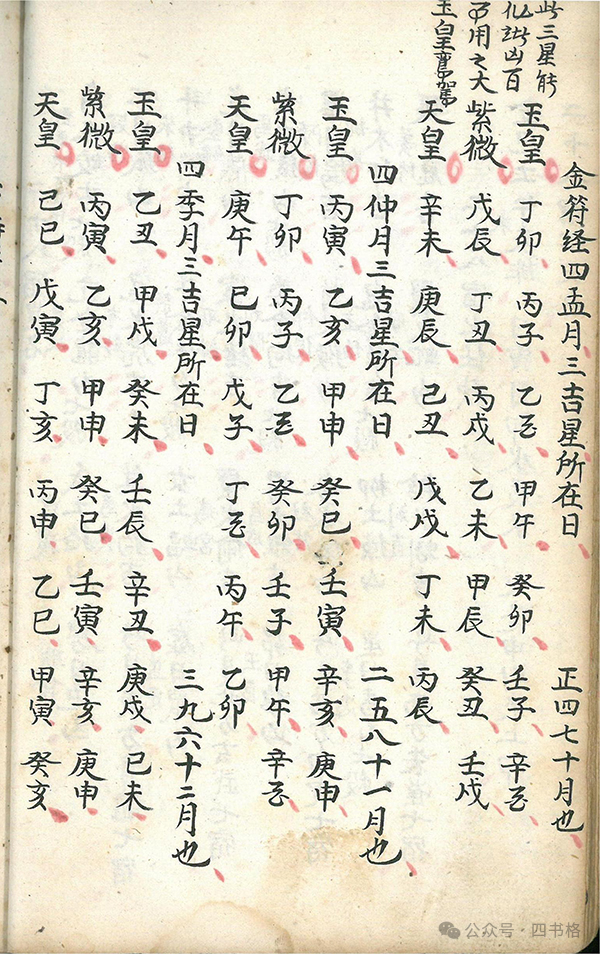 此三星能
化諸凶百
可用之大
玉皇鸞駕
金符经四孟月三吉星所在日 正四七十月也
玉皇 丁卯 丙子 乙酉 甲午 癸卯 壬子 辛酉
紫微 戊辰 丁丑 丙戌 乙未 甲辰 癸丑 壬戌
天皇 辛未 庚辰 己丑 戊戌 丁未 丙辰
四仲月三吉星所在日 二五八十一月也
玉皇 丙寅 乙亥 甲申 癸巳 壬寅 辛亥 庚申
紫微 丁卯 丙子 乙酉 癸卯 壬子 甲午 辛酉
天皇 庚午 已卯 戊子 丁酉 丙午 乙卯
四季月三吉星所在日 三九六十二月也
玉皇 乙丑 甲戌 癸未 壬辰 辛丑 庚戌 已未
紫微 丙寅 乙亥 甲申 癸巳 壬寅 辛亥 庚申
天皇 已巳 戊寅 丁亥 丙申 乙巳 甲寅 癸亥
公众号·四书格